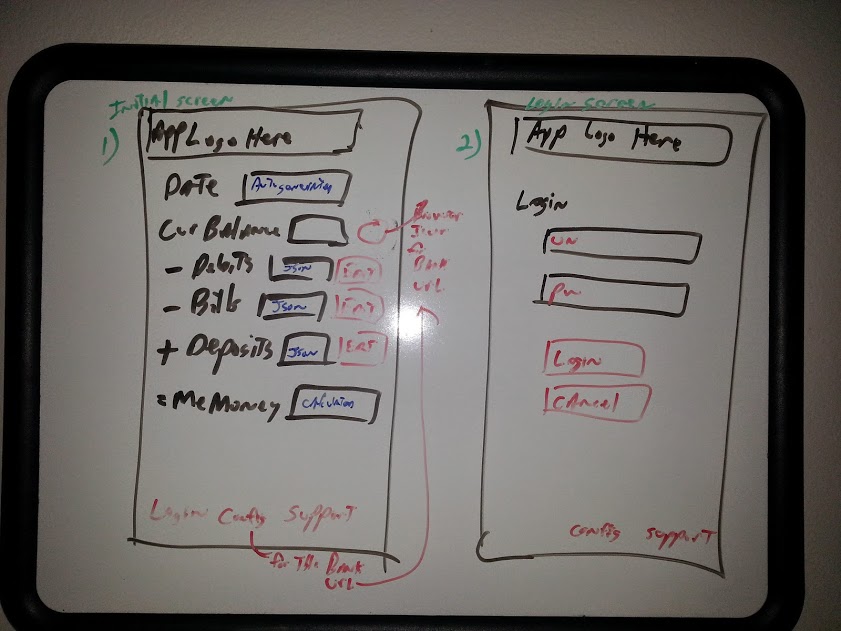 Initial screen
1)
App Logo Here
Date Autogenerated
Cur Balance
- Debits Json Edit
- Bills Json Edit
+ Deposits Json Edit
= MeMoney Calculation
Login Config Support
for the Bank
URL
Browser
Icon
to
Bank
URL
Login screen
2)
App Logo Here
Login
UN
PW
Login
Cancel
Config Support